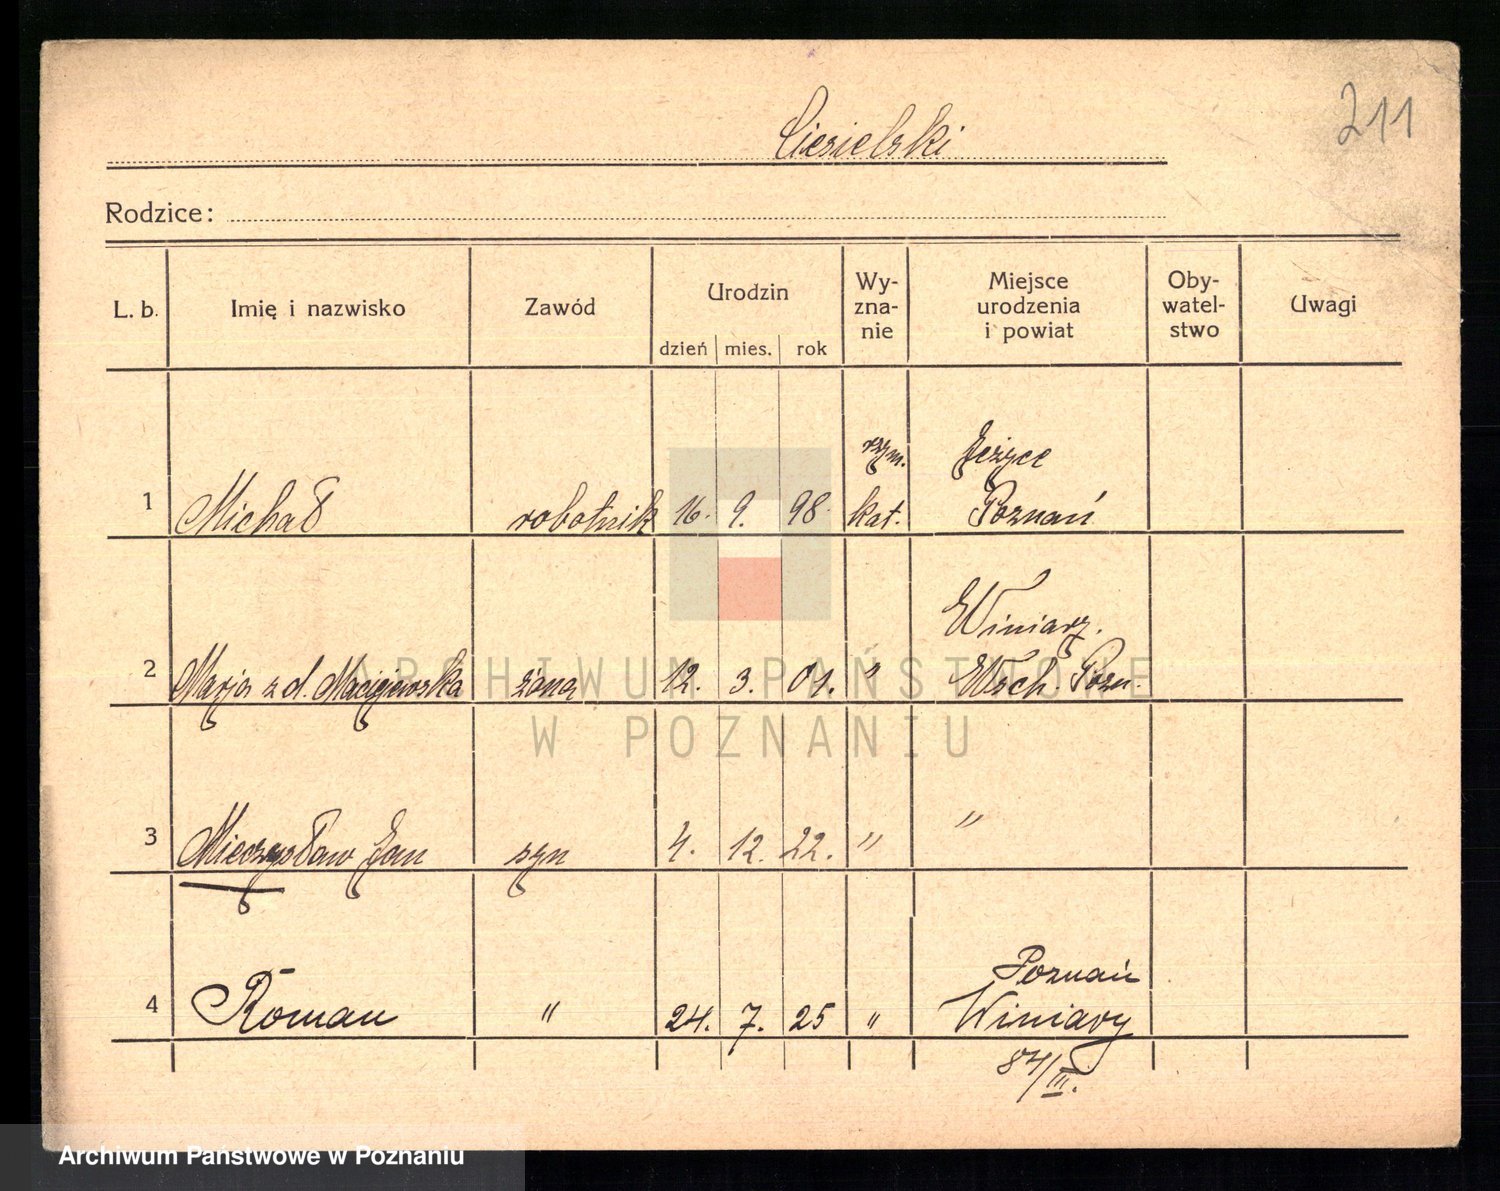 211
Ciesielski
Rodzice:
L. b. Imię i nazwisko Zawód Urodzin dzień mies. rok Wy-zna-nie Miejsce urodzenia i powiat Oby-watel-stwo Uwagi
rzym. Jeżyce
1 Michał robotnik 16. 9. 98. kat. Poznań
Winiarz.
2 Marja z d. Maciejewska żona 12. 3. 01. " Wsch. Pozn.
3 Mieczysław Jan syn 4. 12. 22. " "
Poznań
4 Roman " 24. 7. 25 " Winiary
84/III.
ARCHIWUM PAŃSTWOWE
W POZNANIU
Archiwum Państwowe w Poznaniu